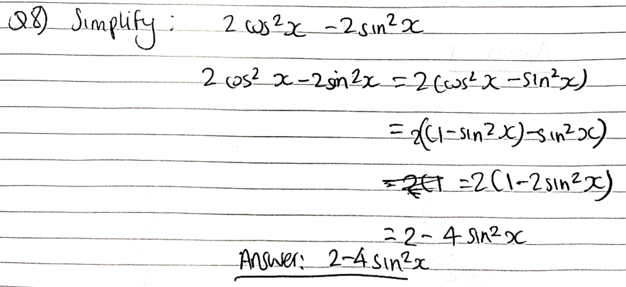 Q8) Simplify: 2 cos²x - 2 sin²x
2 cos² x - 2sin²x = 2(cos² x - sin²x)
= 2((1-sin²x)-sin²x)
= 2(1 = 2(1-2sin²x)
= 2 - 4 sin²x
Answer: 2-4 sin²x